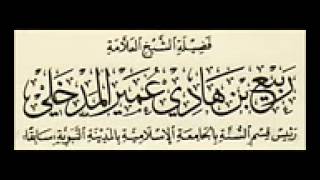 فَضِيْلَةُ الشَّيْخِ العَلَّامَةِ
رَبِيْع بْن هَادِي عُمَيْر المَدْخَلِي
رَئِيْسُ قِسْمِ السُّنَّةِ بِالجَامِعَةِ الإِسْلَامِيَّةِ بِالمَدِيْنَةِ النَّبَوِيَّةِ سَابِقًا